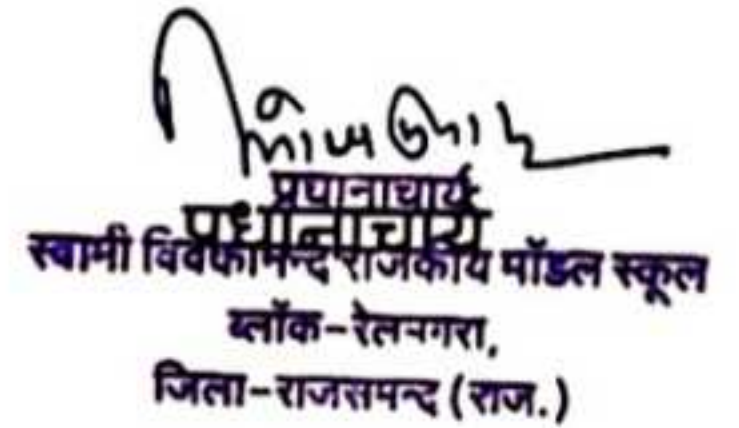 प्रधानाचार्य
प्रधानाचार्य
स्वामी विवेकानन्द राजकीय मॉडल स्कूल
ब्लॉक-रेलमगरा,
जिला-राजसमन्द (राज.)